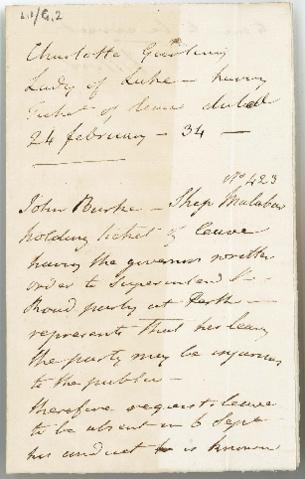 Charlotte
Lady of Luke - having
Ticket of leave dated
24 february - 34 -
No 423
John Burke - Ship Malabar
holding ticket of leave
having the governors written
order to Superintend a
Road party at Perth -
represents that his leaving
the party may be injurious
to the public -
therefore requests leave
to be absent in 6 Sept
his conduct is known